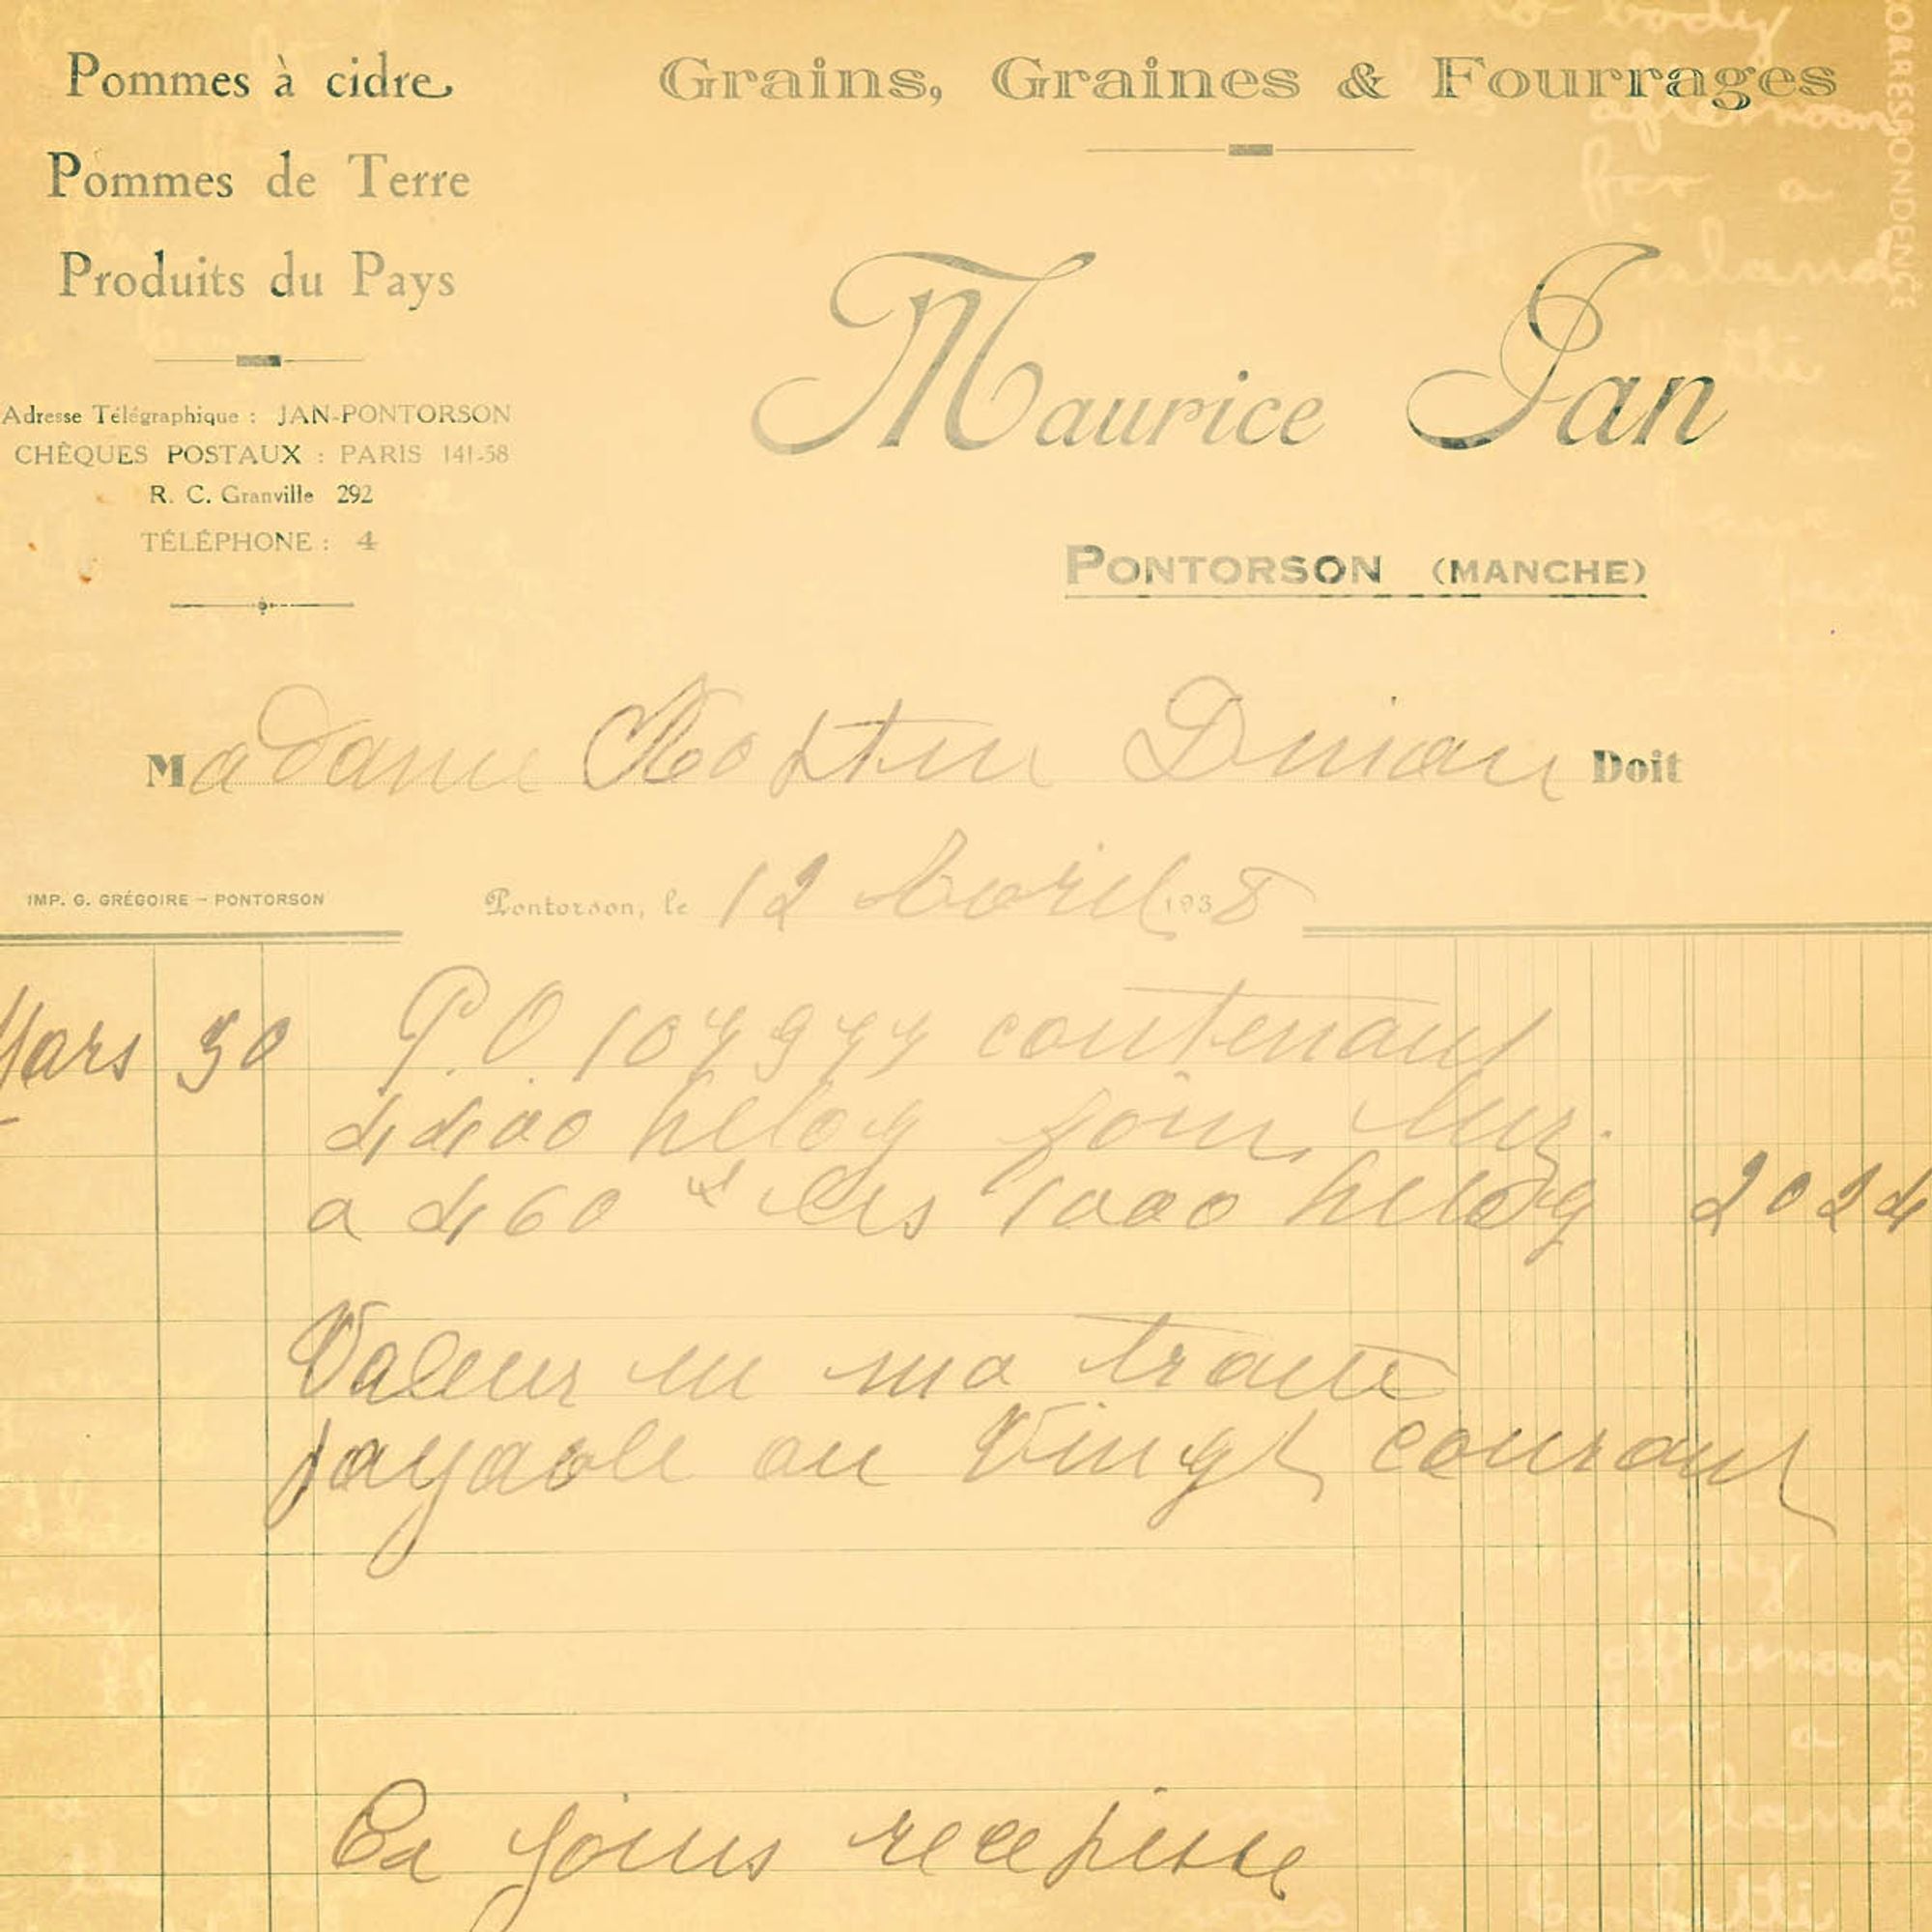 Pommes à cidre
Pommes de Terre
Produits du Pays
Adresse Télégraphique : JAN-PONTORSON
CHÈQUES POSTAUX : PARIS 141-58
R. C. Granville 292
TÉLÉPHONE : 4
Grains, Graines & Fourrages
Maurice Jan
PONTORSON (MANCHE)
Madame Dinan Doit
IMP. G. GRÉGOIRE - PONTORSON
Pontorson, le 12 Avril 1938
Mars 30 P.O. contenant
4400 kilog foin Luz.
a 460 les 1000 kilog 2024
Valeur en ma traite
payable au Vingt courant
Ca joins recepisse
CORRESPONDENCE
body
afternoon
for a
island